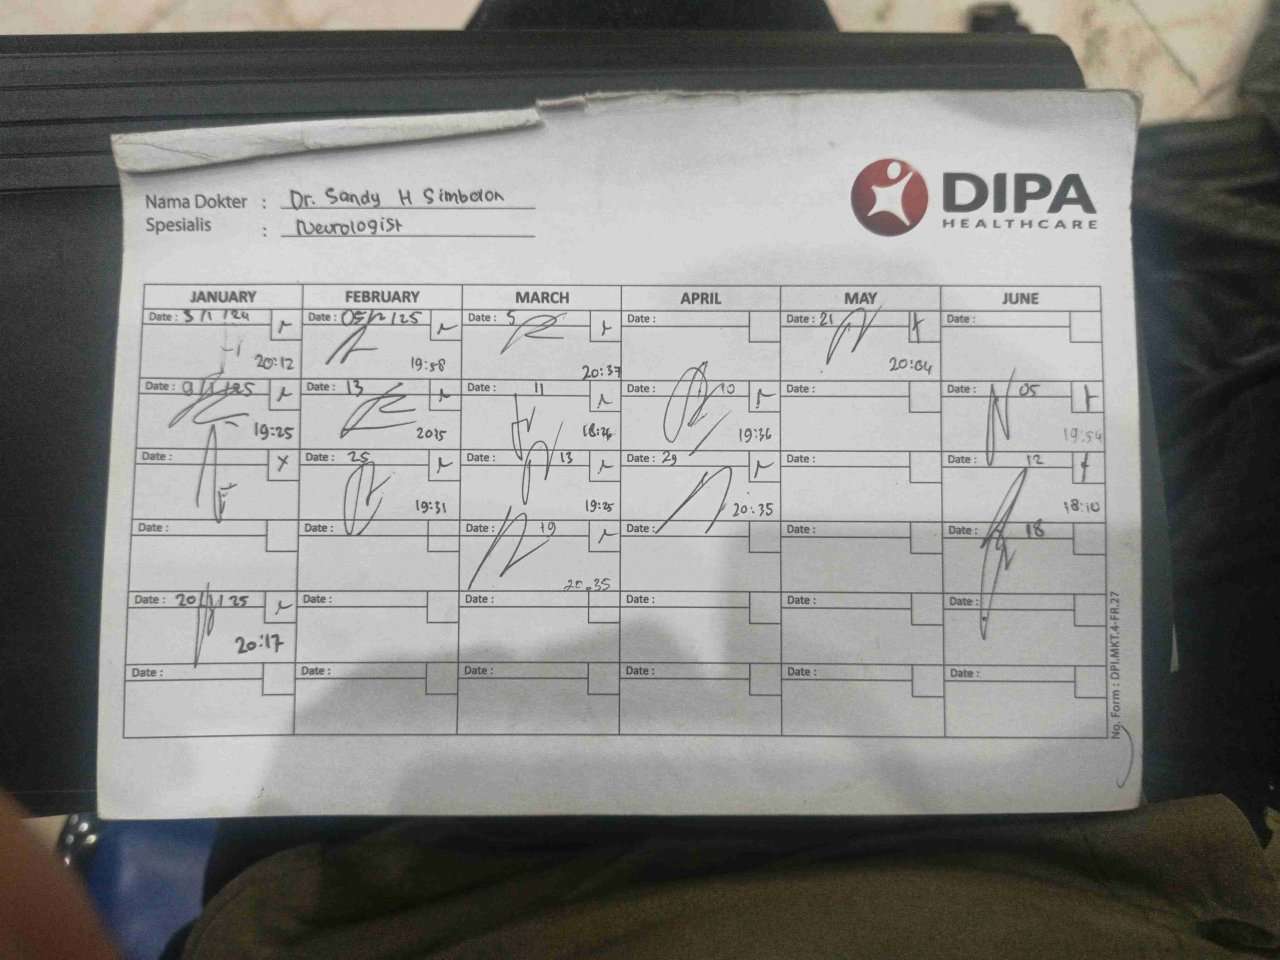 Nama Dokter : Dr. Sandy H Simbolon
Spesialis : Neurologist
DIPA
HEALTHCARE
JANUARY FEBRUARY MARCH APRIL MAY JUNE
Date : 3/1/24 Date : 05/2/25 Date : 5 Date : Date : 21 Date :
20:12 19:58 20:37 20:04
Date : 9/1/25 Date : 13 Date : 11 Date : 10 Date : Date : 05
19:25 2025 18:26 19:36 19:54
Date : Date : 25 Date : 13 Date : 29 Date : Date : 12
19:31 19:25 20:35 18:10
Date : Date : Date : 19 Date : Date : Date : 18
20.35
Date : 20/1/25 Date : Date : Date : Date : Date :
20:17
Date : Date : Date : Date : Date : Date :
No. Form : DPI.MKT.4-FR.27